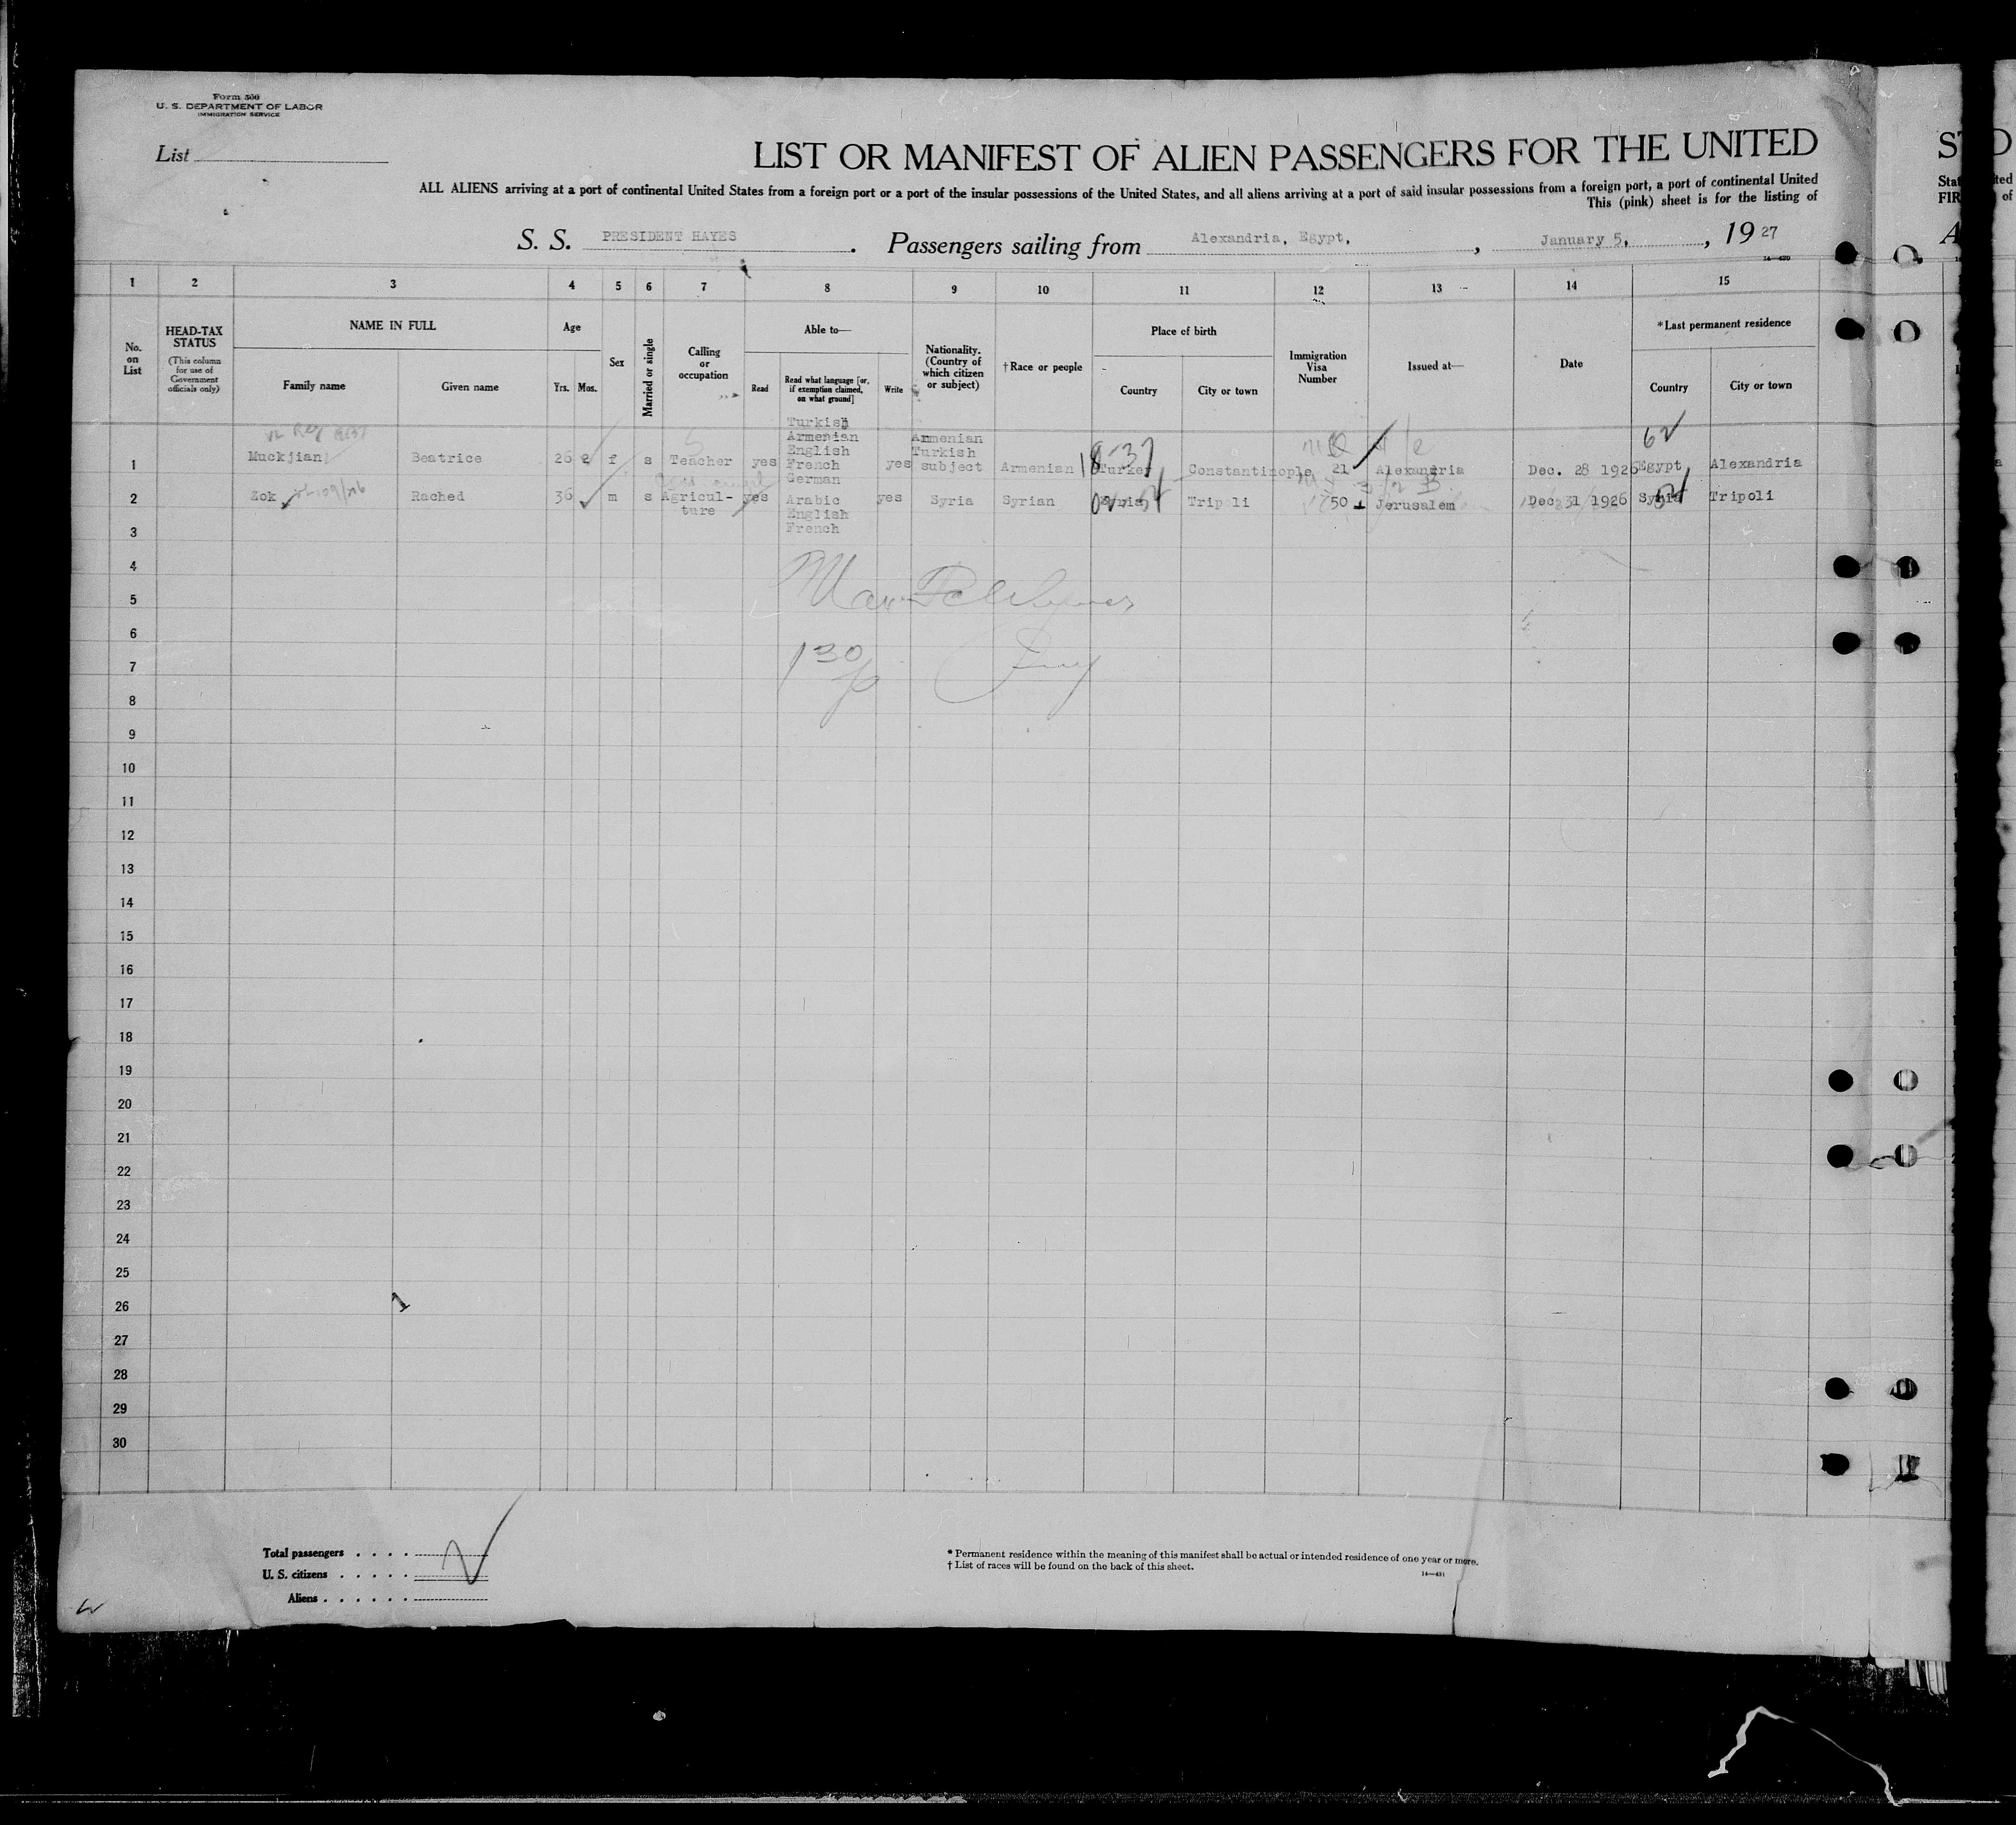 Form 500
U. S. DEPARTMENT OF LABOR
IMMIGRATION SERVICE
List
LIST OR MANIFEST OF ALIEN PASSENGERS FOR THE UNITED
ALL ALIENS arriving at a port of continental United States from a foreign port or a port of the insular possessions of the United States, and all aliens arriving at a port of said insular possessions from a foreign port, a port of continental United
This (pink) sheet is for the listing of
S. S. PRESIDENT HAYES. Passengers sailing from Alexandria, Egypt, , January 5, , 19 27
1 2 3 4 5 6 7 8 9 10 11 12 13 14 15
No. on List
HEAD-TAX STATUS
(This column for use of Government officials only)
NAME IN FULL
Family name Given name
Age
Yrs. Mos.
Sex
Married or single
Calling or occupation
Able to—
Read
Read what language [or, if exemption claimed, on what ground]
Write
Nationality. (Country of which citizen or subject)
†Race or people
Place of birth
Country City or town
Immigration Visa Number
Issued at—
Date
*Last permanent residence
Country City or town
1 Muckjian Beatrice 26 f s Teacher yes Turkish Armenian English French German yes Armenian Turkish subject Armenian Turkey Constantinople 21 Alexandria Dec. 28 1926 Egypt Alexandria
2 Zok Rached 36 m s Agricul-ture yes Arabic English French yes Syria Syrian Syria Tripoli 50 Jerusalem Dec 31 1926 Syria Tripoli
3
4
5
6
7
8
9
10
11
12
13
14
15
16
17
18
19
20
21
22
23
24
25
26
27
28
29
30
Total passengers . . . .
U. S. citizens . . . . .
Aliens . . . . . .
* Permanent residence within the meaning of this manifest shall be actual or intended residence of one year or more.
† List of races will be found on the back of this sheet.